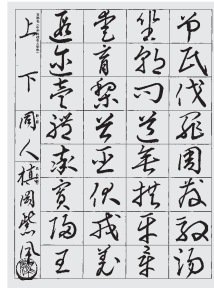 弔民伐罪周發殷湯
坐朝問道垂拱平章
愛育黎首臣伏戎羌
遐邇壹體率賓歸王
上下同人植岡紫